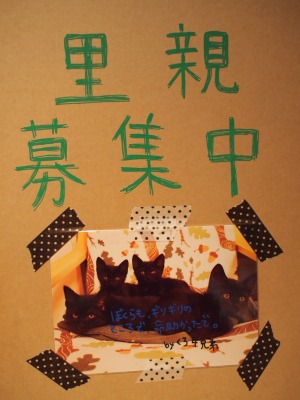 里親
募集中
ぼくらも、ギリギリの
ところで命助かったで。
byくろ4兄弟